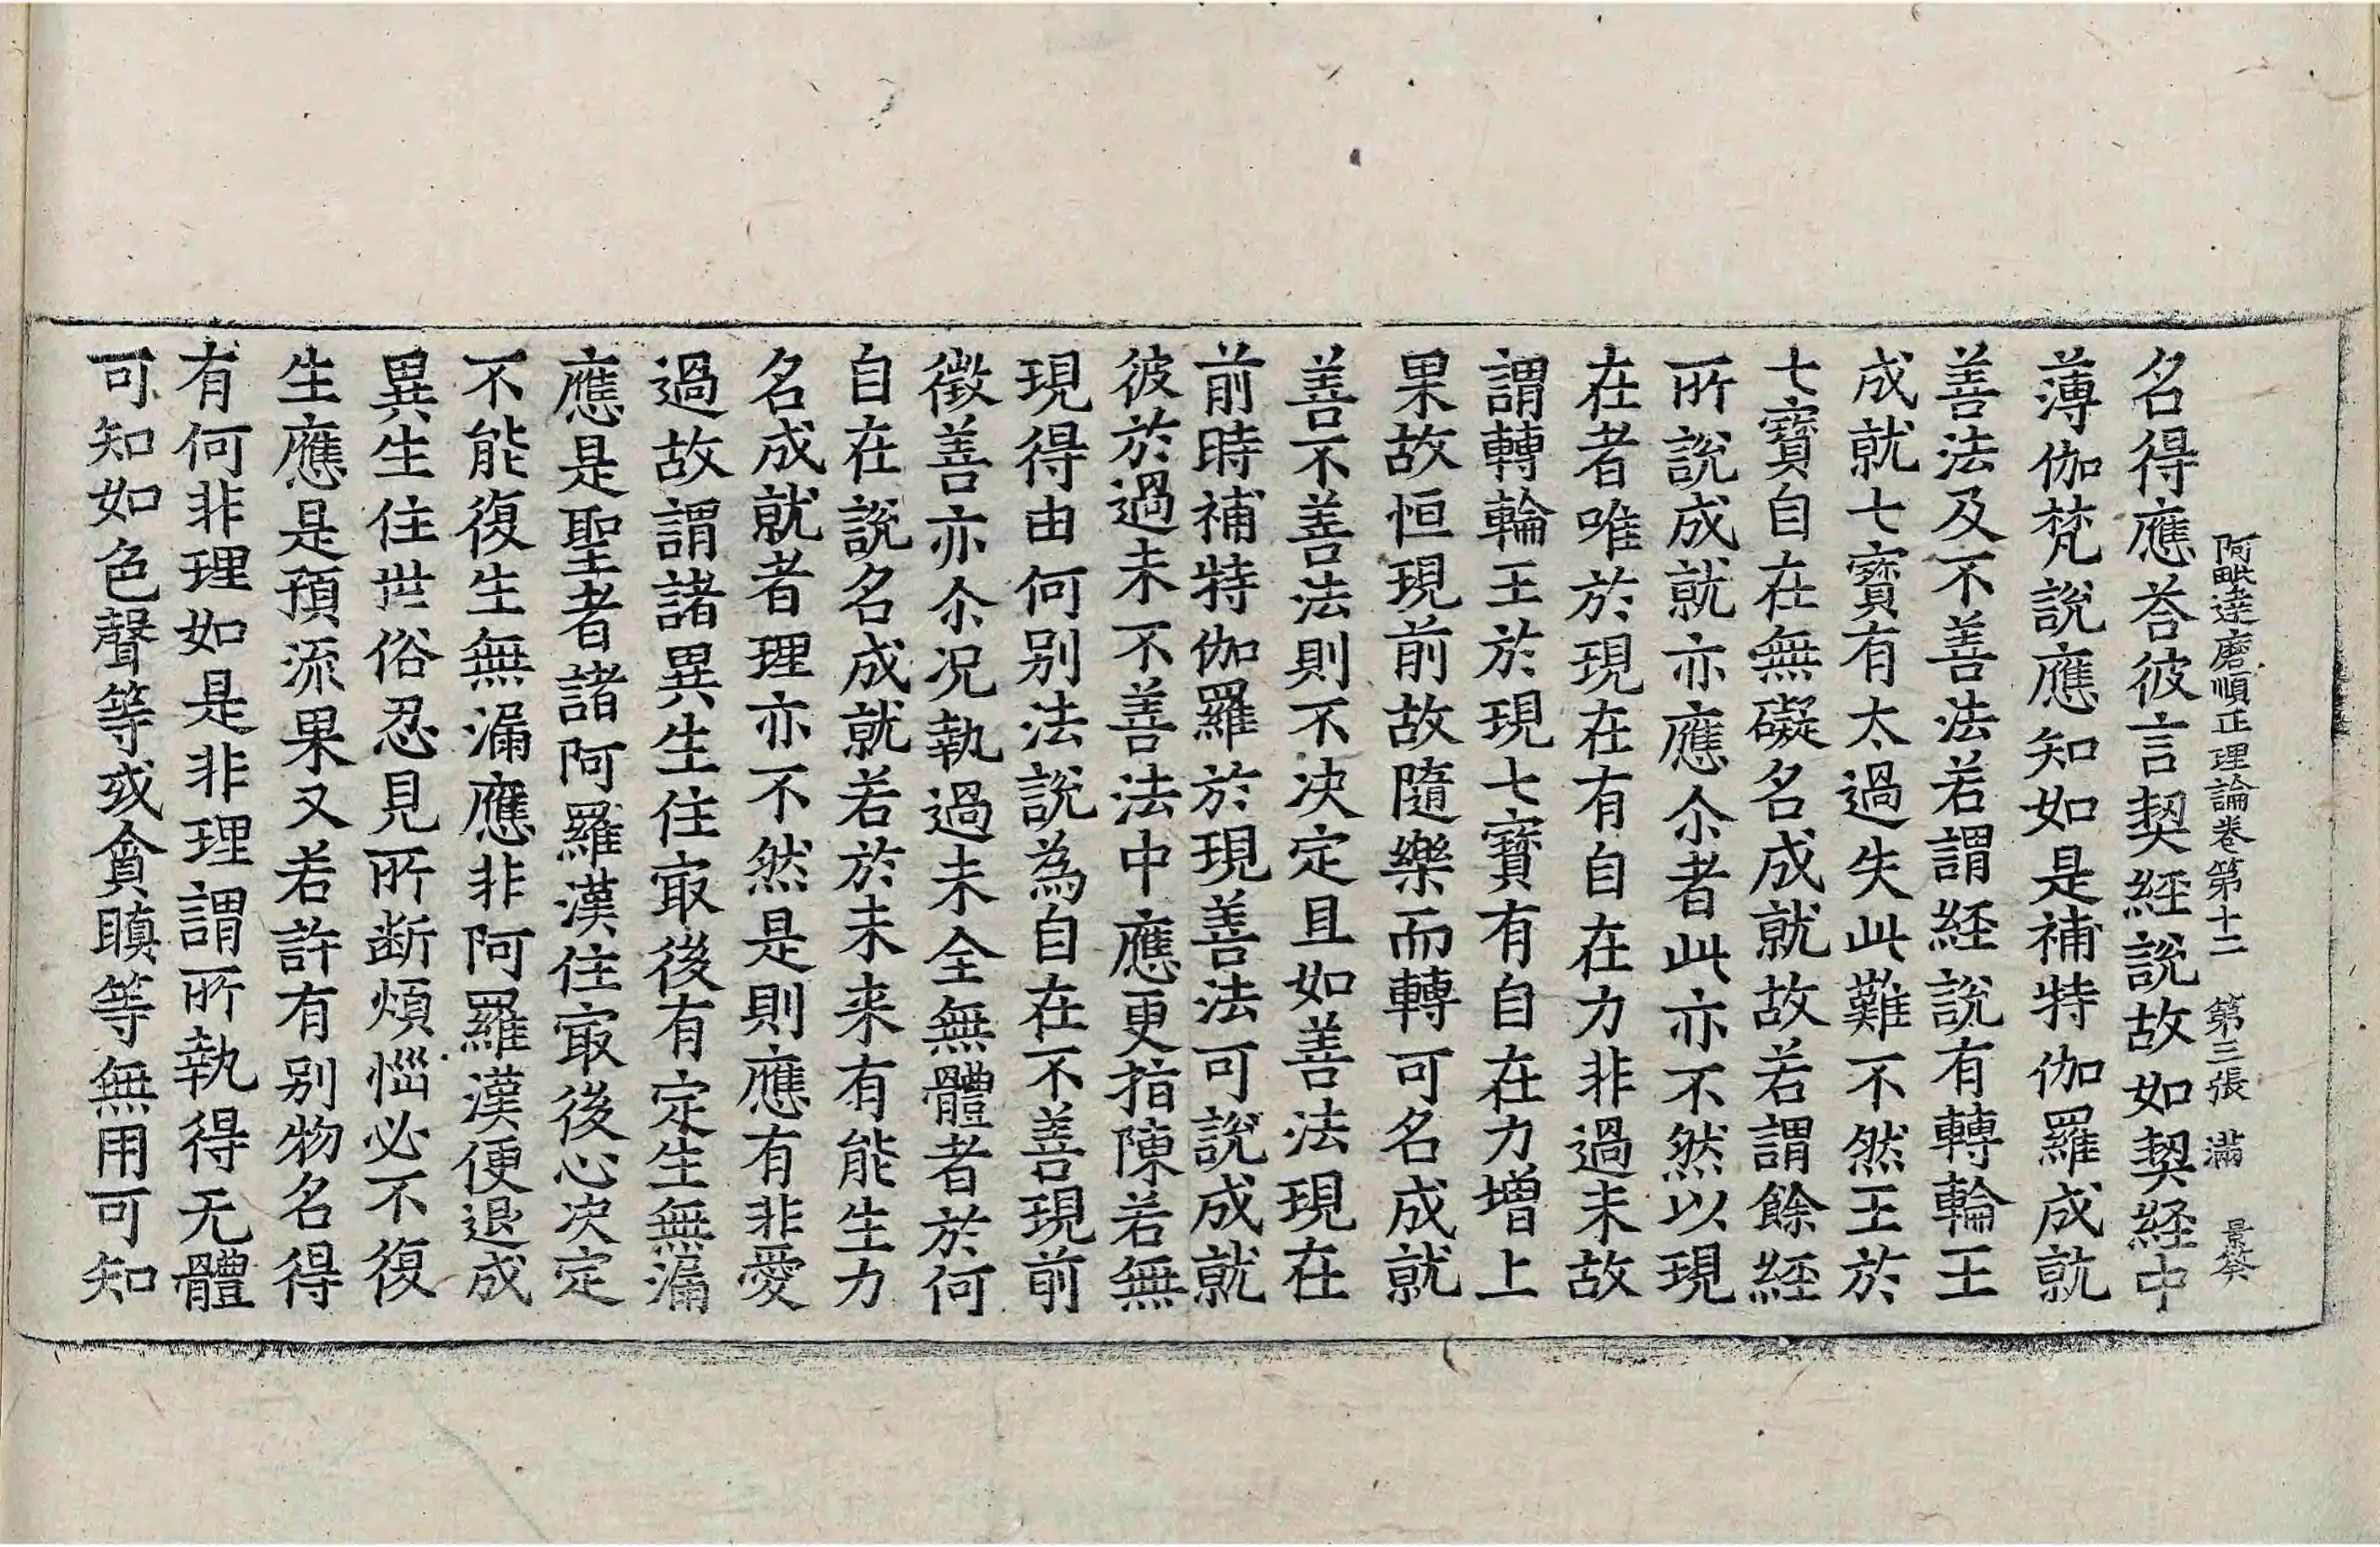 阿毗達磨順正理論卷第十二 第三張 滿 景䇲
名得應荅彼言契経說故如契経中
薄伽梵說應知如是補特伽羅成就
善法及不善法若謂経說有轉輪王
成就七寶有太過失此難不然王於
七寶自在無礙名成就故若謂餘経
所說成就亦應尒者此亦不然以現
在者唯於現在有自在力非過未故
謂轉輪王於現七寶有自在力增上
果故恒現前故隨樂而轉可名成就
善不善法則不决定且如善法現在
前時補特伽羅於現善法可說成就
彼於過未不善法中應更指陳若無
現得由何别法說為自在不善現前
徵善亦尒况執過未全無體者於何
自在說名成就若於未来有能生力
名成就者理亦不然是則應有非愛
過故謂諸異生住㝡後有定生無漏
應是聖者諸阿羅漢住㝡後心决定
不能復生無漏應非阿羅漢便退成
異生住世俗忍見所断煩惱必不復
生應是預流果又若許有别物名得
有何非理如是非理謂所執得无體
可知如色聲等或貪瞋等無用可知